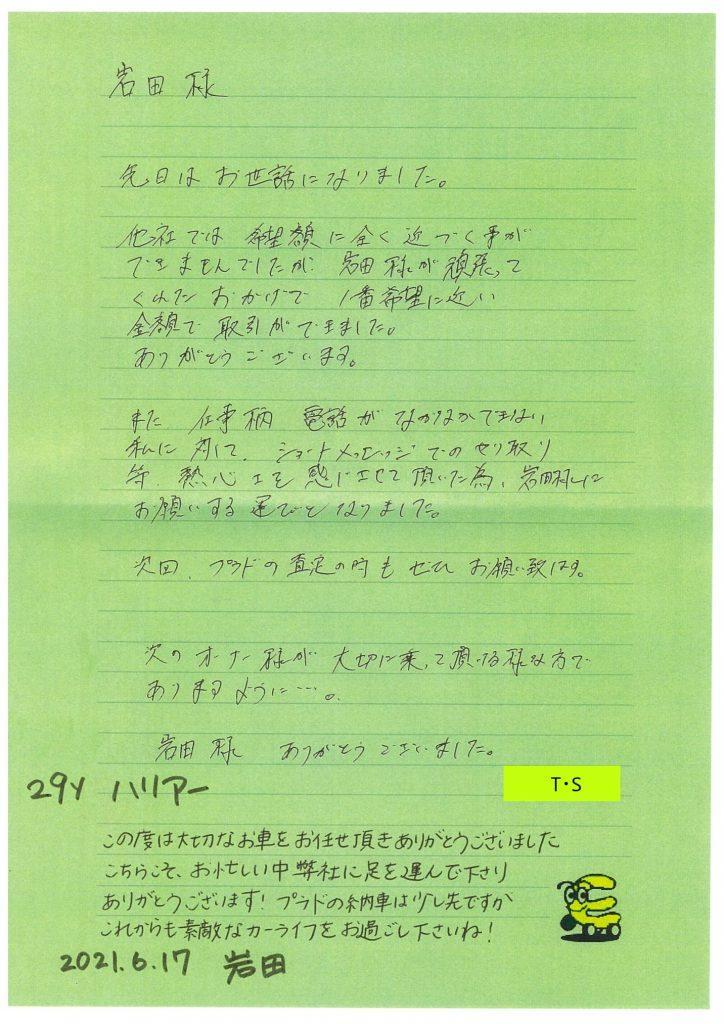 岩田 様
先日は お世話になりました。
他社では 希望額に 全く 近づく事が
できませんでしたが、岩田 様が 頑張って
くれた おかげで 1番希望に近い
金額で 取引ができました。
ありがとうございます。
また、仕事柄 電話が なかなかできない
私に 対して、ショートメッセージでのやり取り
等、熱心さを 感じさせて 頂いた為、岩田様に
お願いする 運びと なりました。
次回、プラドの 査定の時も ぜひ お願い致します。
次の オーナー様が 大切に乗って頂ける様な方で
ありますように…。
岩田 様 ありがとうございました。
T・S
29Y ハリアー
この度は大切なお車をお任せ頂きありがとうございました
こちらこそ、お忙しい中弊社に足を運んで下さり
ありがとうございます!プラドの納車は少し先ですが
これからも素敵なカーライフをお過ごし下さいね!
2021.6.17 岩田